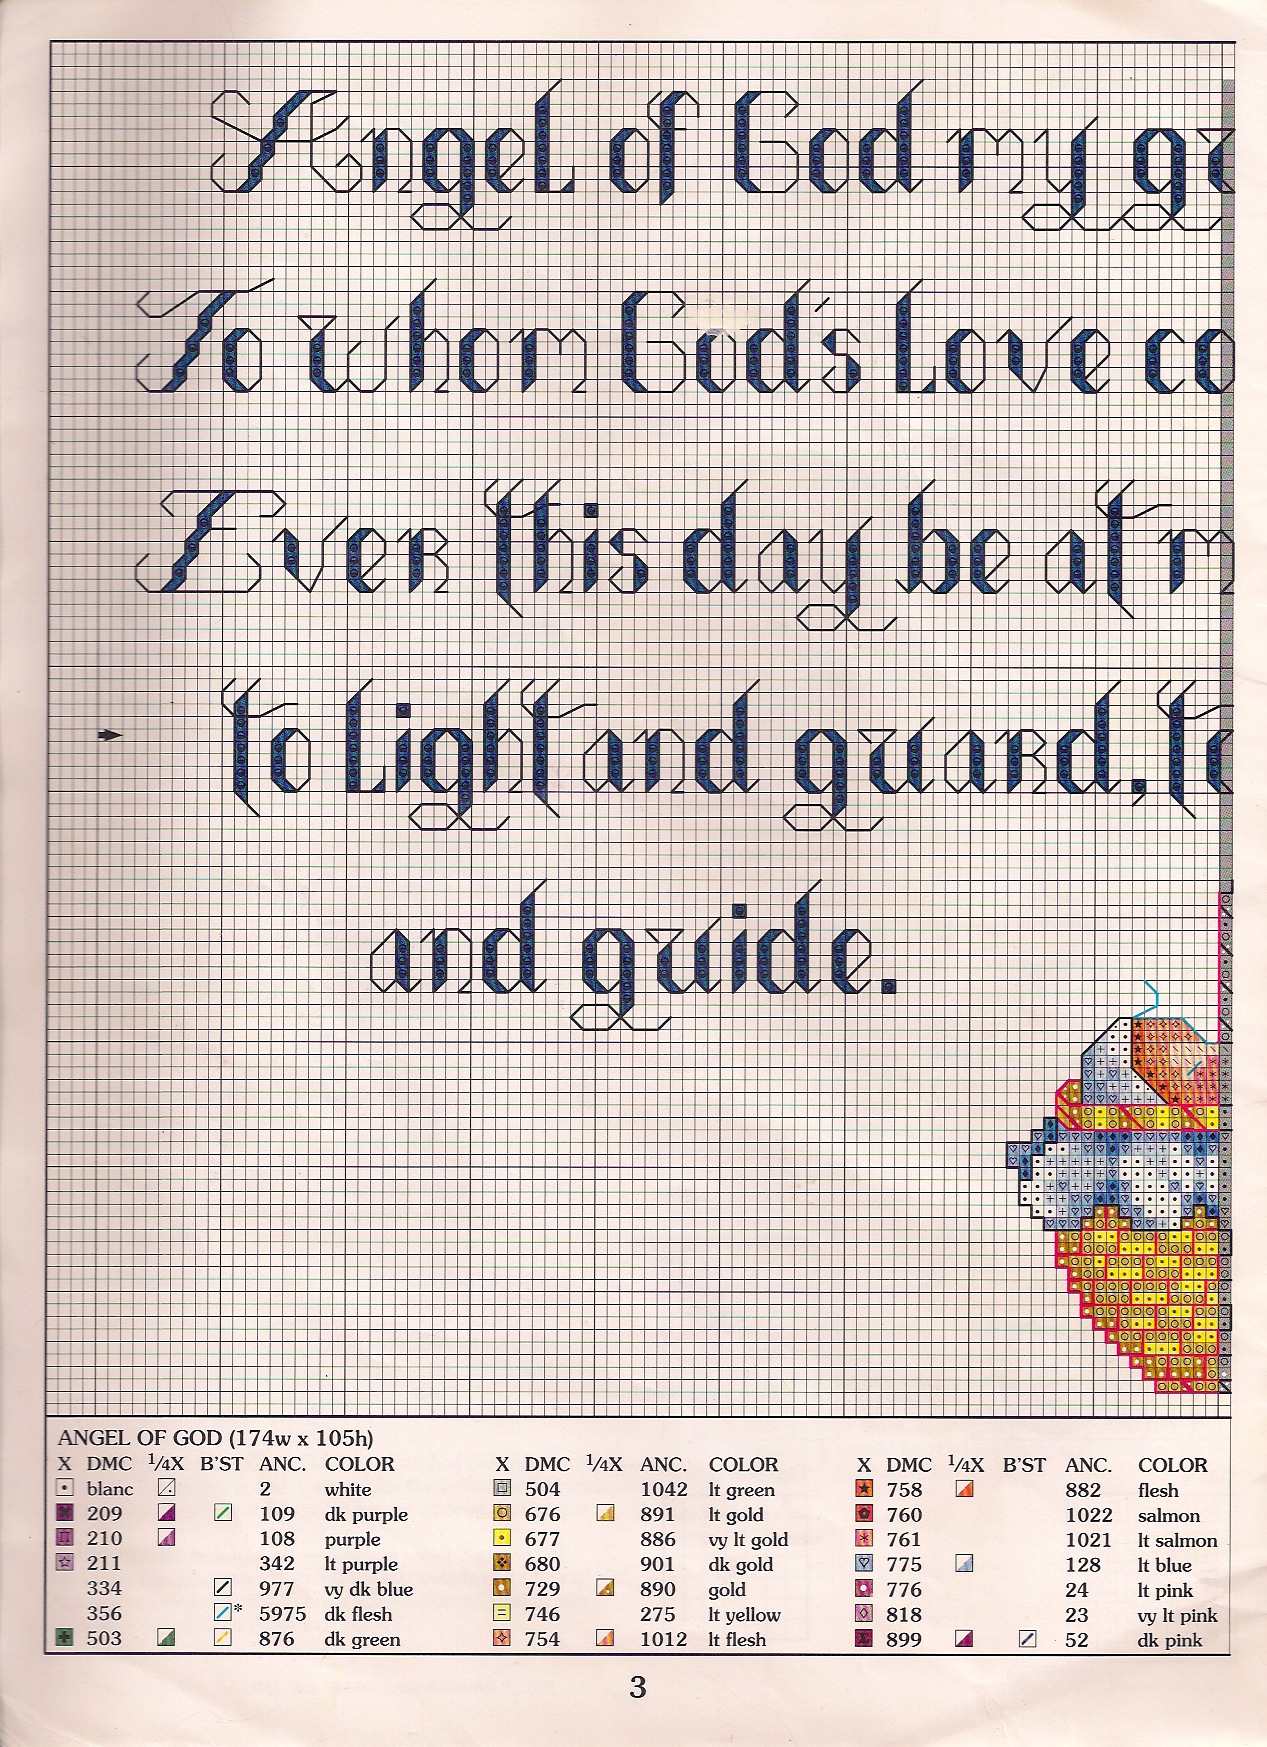 Angel of God my gu
To whom God's Love co
Ever this day be at m
to Light and guard, to
and guide.
ANGEL OF GOD (174w x 105h)
X DMC 1/4X B'ST ANC. COLOR X DMC 1/4X ANC. COLOR X DMC 1/4X B'ST ANC. COLOR
blanc 2 white 504 1042 lt green 758 882 flesh
209 109 dk purple 676 891 lt gold 760 1022 salmon
210 108 purple 677 886 vy lt gold 761 1021 lt salmon
211 342 lt purple 680 901 dk gold 775 128 lt blue
334 977 vy dk blue 729 890 gold 776 24 lt pink
356 * 5975 dk flesh 746 275 lt yellow 818 23 vy lt pink
503 876 dk green 754 1012 lt flesh 899 52 dk pink
3